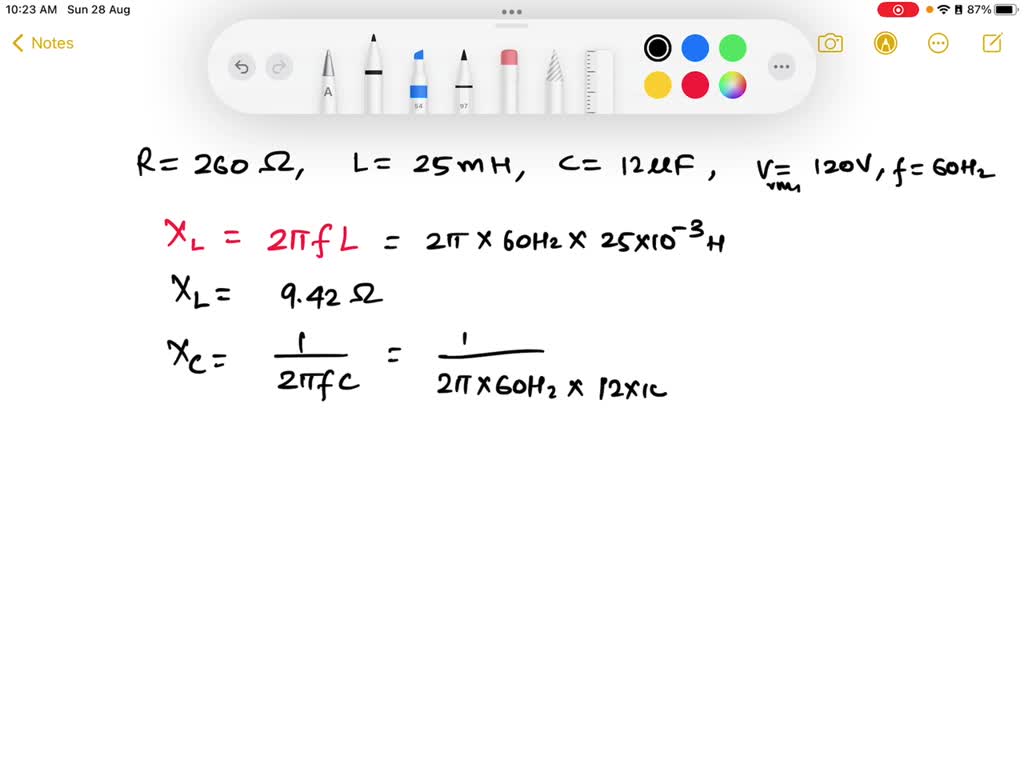 10:23 AM Sun 28 Aug 87%
Notes
A 54 97
R = 260 Ω, L = 25 mH, C = 12 μF, V = 120V, f = 60Hz
rms
X_L = 2πfL = 2π × 60Hz × 25×10⁻³ H
X_L = 9.42 Ω
X_C = 1/(2πfC) = 1/(2π × 60Hz × 12×10